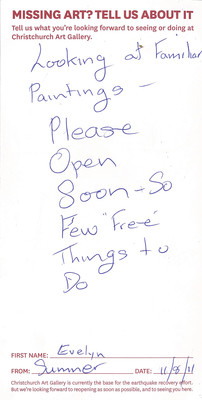 MISSING ART? TELL US ABOUT IT
Tell us what you're looking forward to seeing or doing at
Christchurch Art Gallery.
Looking at Familiar
Paintings –
Please
Open
Soon-So
Few "Free"
Things to
Do
FIRST NAME: Evelyn
FROM: Sumner DATE: 11/8/11
Christchurch Art Gallery is currently the base for the earthquake recovery effort.
But we're looking forward to reopening as soon as possible, and to seeing you here.